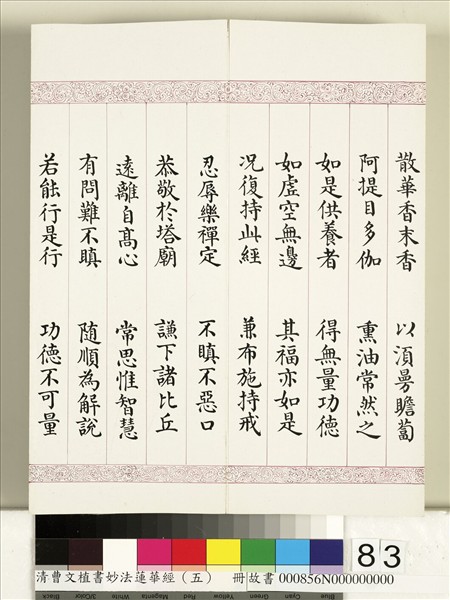 散華香末香 以湏曼瞻蔔
阿提目多伽 熏油常然之
如是供養者 得無量功德
如虛空無邊 其福亦如是
況復持此經 兼布施持戒
忍辱樂禪定 不瞋不惡口
恭敬於塔廟 謙下諸比丘
遠離自高心 常思惟智慧
有問難不瞋 随順為解說
若能行是行 功德不可量
83
清曹文植書妙法蓮華經（五） 冊 故書 000856N000000000
Black 3/Color White Magenta Red Yellow Green Cyan Blue